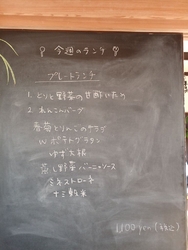 今週のランチ
プレートランチ
1. とりと野菜の甘酢いため
2. れんこんバーグ
青菜とりんごのサラダ
Wポテトグラタン
ゆず大根
蒸し野菜バーニャソース
ミネストローネ
十三穀米
1,100 yen (税込)